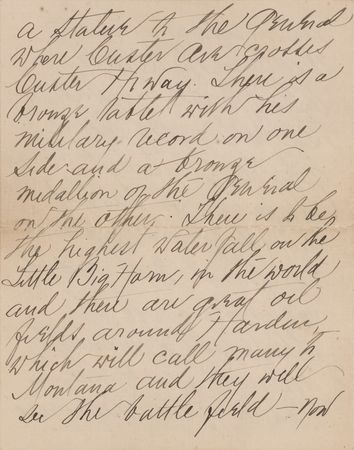 a statue to the General
where Custer Ave crosses
Custer Hiway. There is a
bronze tablet with his
military record on one
side and a bronze
medallion of the General
on the other. There is to be
the highest water fall, on the
Little Big Horn, in the world
and there are great oil
fields around Hardin,
which will call many to
Montana and they will
see the battle field — now